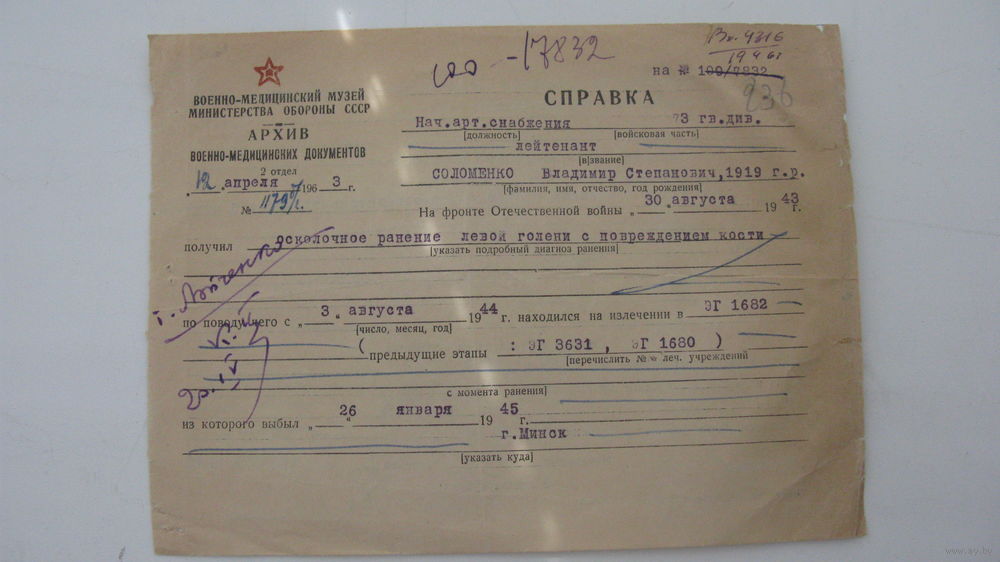 100 -17832
Вх. 4316
194 6г
на № 109/7832
236
ВОЕННО-МЕДИЦИНСКИЙ МУЗЕЙ
МИНИСТЕРСТВА ОБОРОНЫ СССР
АРХИВ
ВОЕННО-МЕДИЦИНСКИХ ДОКУМЕНТОВ
2 отдел
„12 апреля 1963 г.
№ 1179/г.
СПРАВКА
Нач.арт.снабжения 73 гв.див.
[должность] [войсковая часть]
лейтенант
[в/звание]
СОЛОМЕНКО Владимир Степанович,1919 г.р.
[фамилия, имя, отчество, год рождения]
На фронте Отечественной войны „30“ августа 1943г.
получил осколочное ранение левой голени с повреждением кости
[указать подробный диагноз ранения]
по поводу чего с „3“ августа 1944 г. находился на излечении в ЭГ 1682
[число, месяц, год]
(предыдущие этапы : ЭГ 3631, ЭГ 1680 )
[перечислить №№ леч. учреждений
с момента ранения]
из которого выбыл „26“ января 1945 г.
г.Минск
[указать куда]
www.ay.by